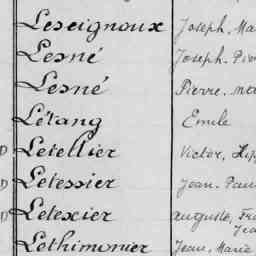 Leseignoux Joseph. Ma
Lesné Joseph. Pier
Lesné Pierre. Ma
Létang Emile
D Letellier Victor, Hip
D Letessier Jean. Pau
D Letexier Auguste, Fra
Jea
Lothimonier Jean, Marie